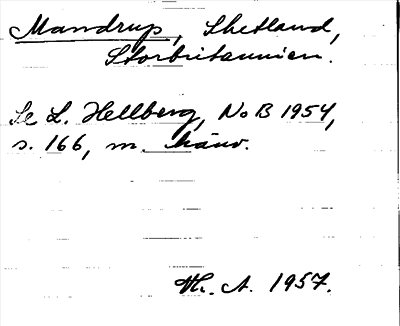 Mandrup, Shetland,
Storbritannien.
Se L. Hellberg, NoB 1954,
s. 166, m. hänv.
Th. A. 1957.